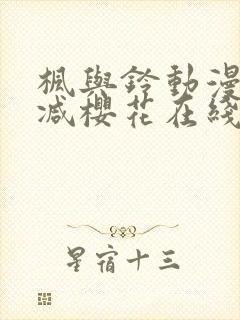 楓與鈴動漫
減櫻花在綫
星宿十三